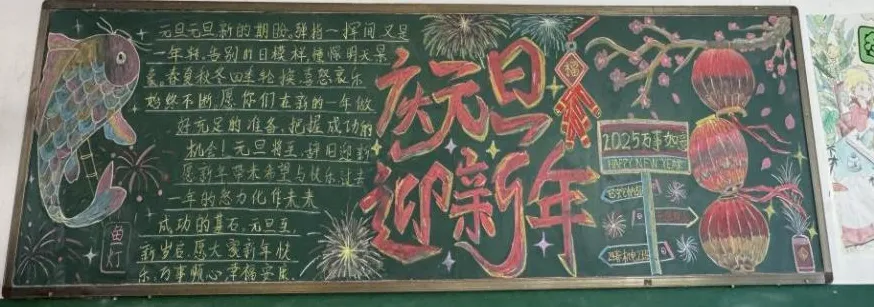 元旦元旦新的期盼。弹指一挥间又是
一年料，告别昨日模样憧憬明天景
意。春夏秋冬四季轮换喜怒哀乐
始终不断，愿你们在新的一年做
好充足的准备，把握成功的
机会！元旦将至，辞旧迎新
愿新年带来希望与快乐，过去
一年的努力化作未来
成功的基石，元旦至，
新岁启，愿大家新年快
乐，万事顺心，幸福安康
鱼灯
庆元旦
迎新年
福
2025万事如意
HAPPY NEW YEAR